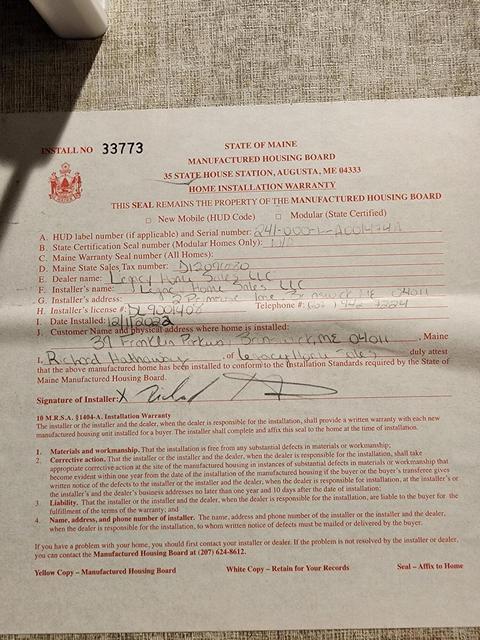 INSTALL NO 33773
STATE OF MAINE
MANUFACTURED HOUSING BOARD
35 STATE HOUSE STATION, AUGUSTA, ME 04333
HOME INSTALLATION WARRANTY
THIS SEAL REMAINS THE PROPERTY OF THE MANUFACTURED HOUSING BOARD
□ New Mobile (HUD Code) □ Modular (State Certified)
A. HUD label number (if applicable) and Serial number: 241-000-L-A001474A
B. State Certification Seal number (Modular Homes Only): N/A
C. Maine Warranty Seal number (All Homes):
D. Maine State Sales Tax number:
E. Dealer name: Legacy Home Sales LLC
F. Installer's name: Legacy Home Sales LLC
G. Installer's address: 2 Brunswick ME 04011
H. Installer's license #: Telephone #:
I. Date Installed: 12/1/2022
J. Customer Name and physical address where home is installed:
37 Franklin Pkwy, Brunswick, ME 04011, Maine
I, Richard Hathaway, of Legacy Home Sales duly attest
that the above manufactured home has been installed to conform to the Installation Standards required by the State of
Maine Manufactured Housing Board.
Signature of Installer: X
10 M.R.S.A. §1404-A. Installation Warranty
The installer or the installer and the dealer, when the dealer is responsible for the installation, shall provide a written warranty with each new
manufactured housing unit installed for a buyer. The installer shall complete and affix this seal to the home at the time of installation.
1. Materials and workmanship. That the installation is free from any substantial defects in materials or workmanship;
2. Corrective action. That the installer or the installer and the dealer, when the dealer is responsible for the installation, shall take
appropriate corrective action at the site of the manufactured housing in instances of substantial defects in materials or workmanship that
become evident within one year from the date of the installation of the manufactured housing if the buyer or the buyer's transferee gives
written notice of the defects to the installer or the installer and the dealer, when the dealer is responsible for installation, at the installer's or
the installer's and the dealer's business addresses no later than one year and 10 days after the date of installation;
3. Liability. That the installer or the installer and the dealer, when the dealer is responsible for the installation, are liable to the buyer for the
fulfillment of the terms of the warranty; and
4. Name, address, and phone number of installer. The name, address and phone number of the installer or the installer and the dealer,
when the dealer is responsible for the installation, to whom written notice of defects must be mailed or delivered by the buyer.
If you have a problem with your home, you should first contact your installer or dealer. If the problem is not resolved by the installer or dealer,
you can contact the Manufactured Housing Board at (207) 624-8612.
Yellow Copy – Manufactured Housing Board White Copy – Retain for Your Records Seal – Affix to Home